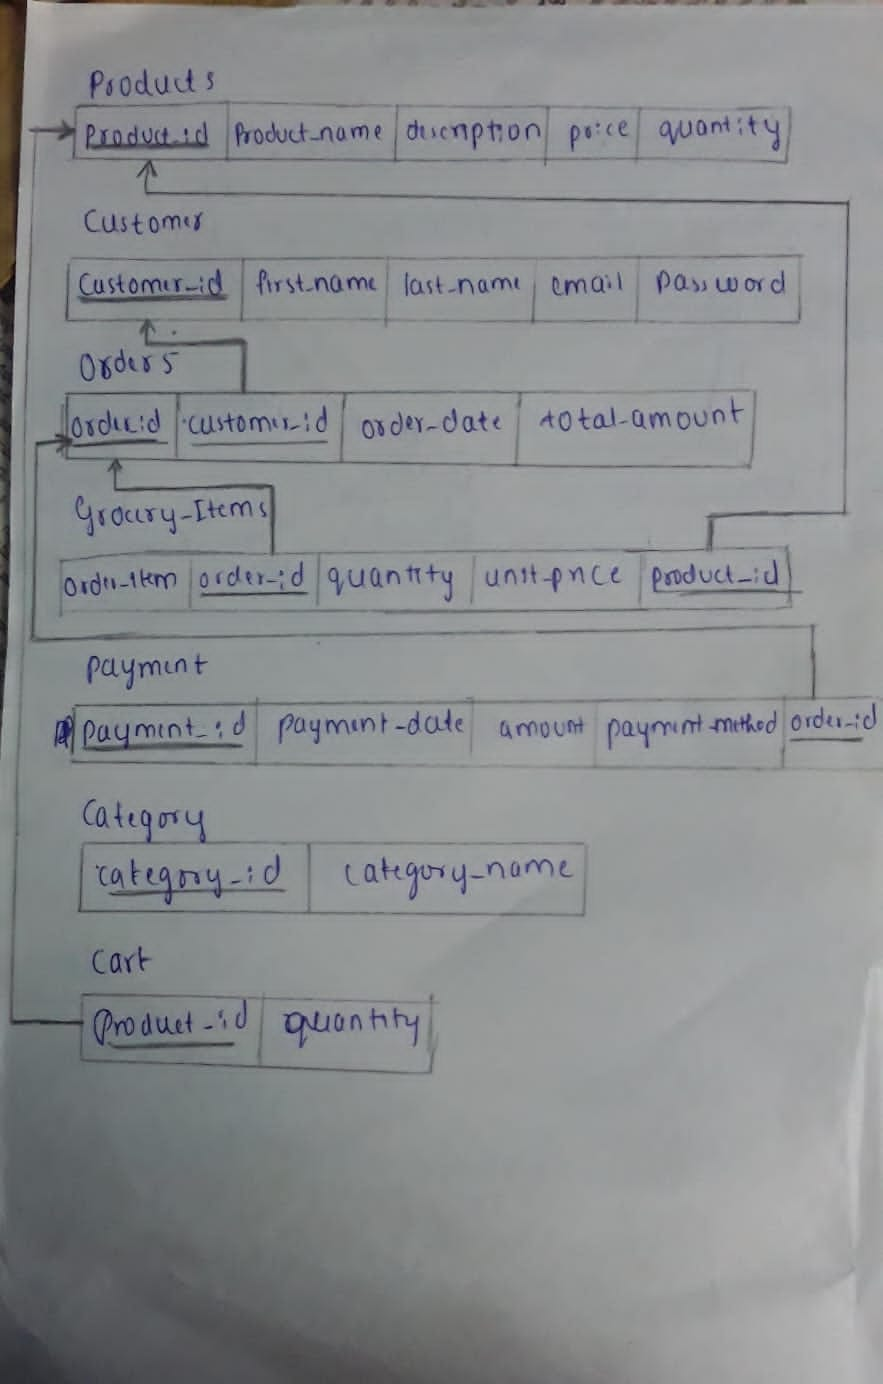 Products
Product_id Product_name description price quantity
Customer
Customer_id first_name last_name email password
Orders
order_id customer_id order-date total-amount
Grocery-Items
Order-item order-id quantity unit-price product_id
payment
payment_id payment-date amount payment-method order-id
Category
category_id category_name
Cart
Product_id quantity